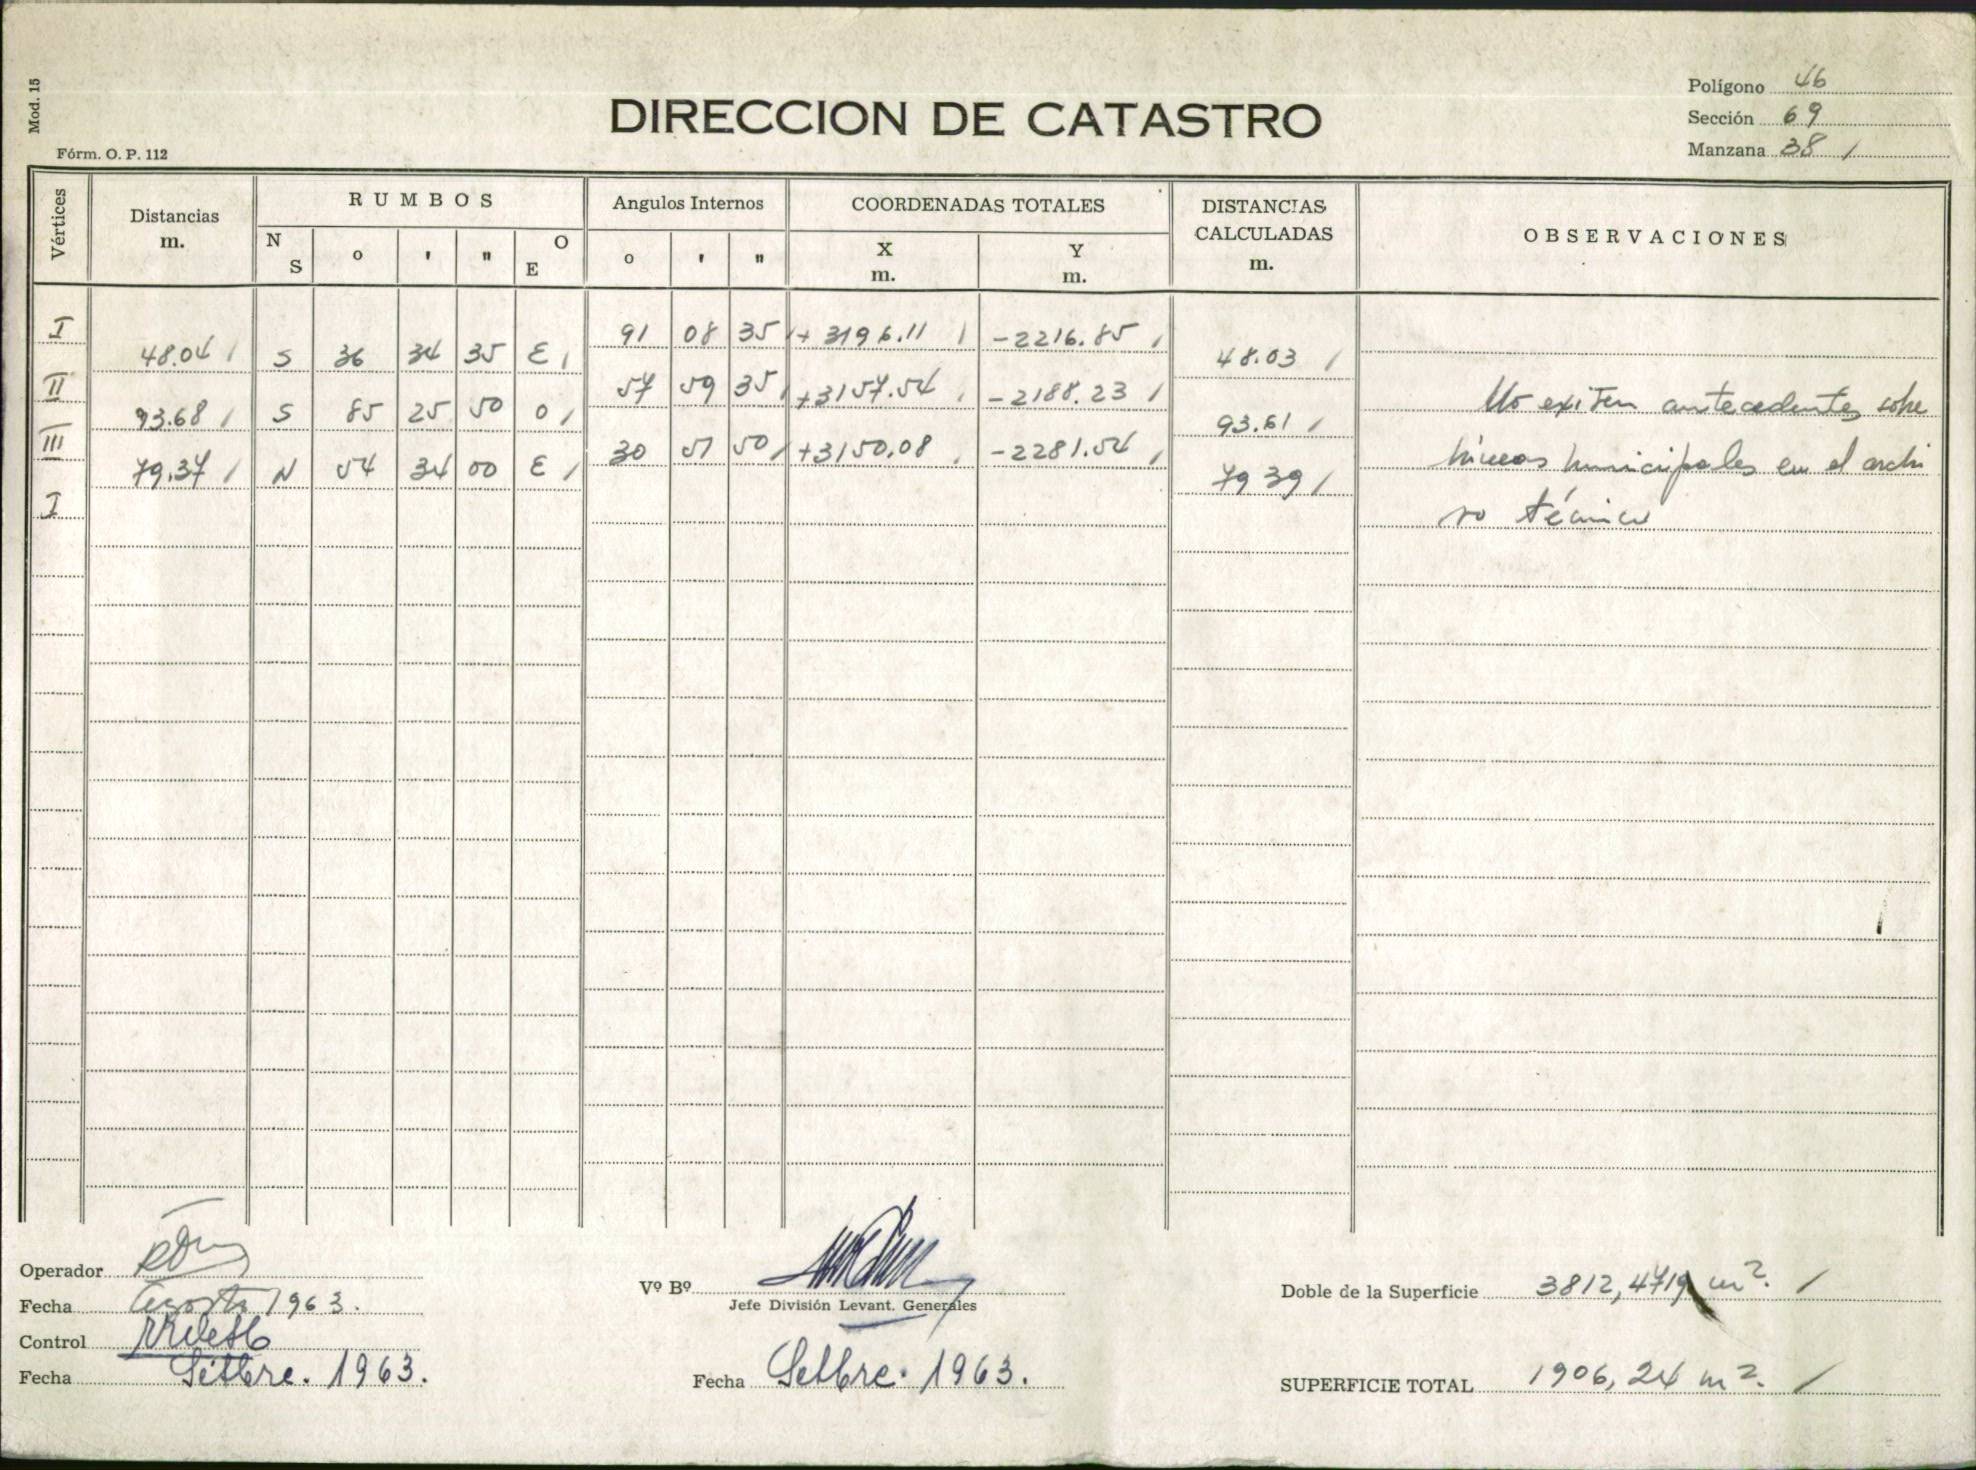 Mod. 15
Fórm. O. P. 112
DIRECCION DE CATASTRO
Polígono 46
Sección 69
Manzana 38 /
Vértices
Distancias
m.
RUMBOS
N S
o
'
"
O E
Angulos Internos
o
'
"
COORDENADAS TOTALES
X
m.
Y
m.
DISTANCIAS
CALCULADAS
m.
OBSERVACIONES
I 91 08 35 + 3196.11 / -2216.85 /
48.04 / S 36 34 35 E / 48.03 /
II 57 59 35 / +3157.54 / -2188.23 /
93.68 / S 85 25 50 O / 93.61 /
III 30 51 50 / +3150.08 / -2281.54 /
79.37 / N 54 34 00 E / 79 39 /
I
No existen antecedentes sobre
líneas municipales en el archi
vo técnico
Operador
Fecha Agosto 1963.
Control
Fecha Setbre. 1963.
Vº Bº
Jefe División Levant. Generales
Fecha Setbre. 1963.
Doble de la Superficie 3812,4719 m². /
SUPERFICIE TOTAL 1906,24 m². /